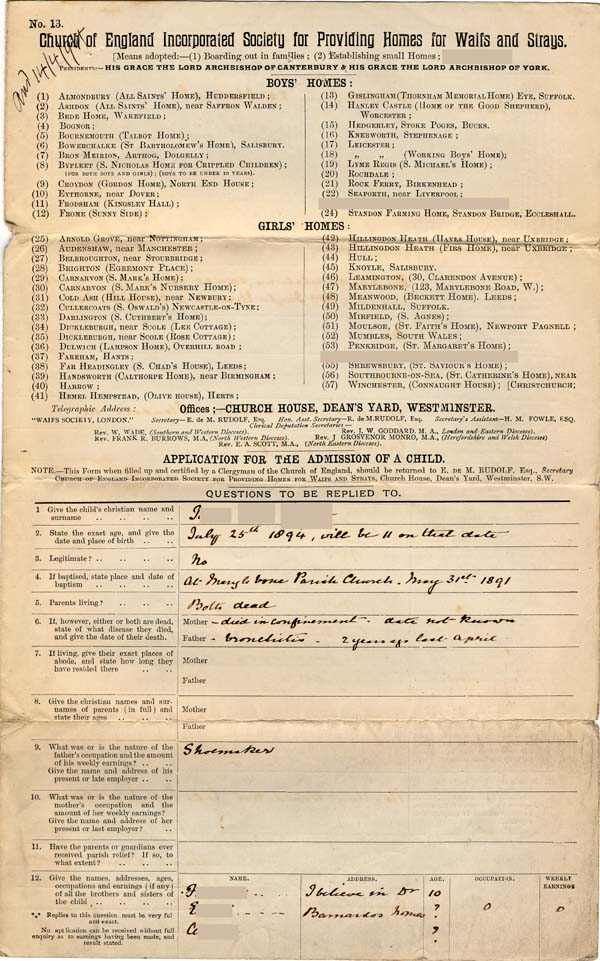 No. 13.
and 14/4/94
Church of England Incorporated Society for Providing Homes for Waifs and Strays.
[Means adopted:—(1) Boarding out in families; (2) Establishing small Homes;
Presidents:— HIS GRACE THE LORD ARCHBISHOP OF CANTERBURY & HIS GRACE THE LORD ARCHBISHOP OF YORK.
BOYS' HOMES:
(1) Almondbury (All Saints' Home), Huddersfield;
(2) Ashdon (All Saints' Home), near Saffron Walden;
(3) Bede Home, Wakefield;
(4) Bognor;
(5) Bournemouth (Talbot Home);
(6) Bowerchalke (St Bartholomew's Home), Salisbury.
(7) Bron Meirion, Arthog, Dolgelly;
(8) Byfleet (S. Nicholas Home for Crippled Children);
(for both boys and girls); (boys to be under 10 years).
(9) Croydon (Gordon Home), North End House;
(10) Eythorne, near Dover;
(11) Frodsham (Kingsley Hall);
(12) Frome (Sunny Side);
(13) Gislingham (Thornham Memorial Home) Eye, Suffolk.
(14) Hanley Castle (Home of the Good Shepherd),
Worcester;
(15) Hedgerley, Stoke Poges, Bucks.
(16) Knebworth, Stephenage;
(17) Leicester;
(18) „ „ (Working Boys' Home);
(19) Lyme Regis (S. Michael's Home);
(20) Rochdale;
(21) Rock Ferry, Birkenhead;
(22) Seaforth, near Liverpool;
(24) Standon Farming Home, Standon Bridge, Eccleshall.
GIRLS' HOMES:
(25) Arnold Grove, near Nottingham;
(26) Audenshaw, near Manchester;
(27) Belbroughton, near Stourbridge;
(28) Brighton (Egremont Place);
(29) Carnarvon (S. Mark's Home);
(30) Carnarvon (S. Mark's Nursery Home);
(31) Cold Ash (Hill House), near Newbury;
(32) Cullercoats (S. Oswald's) Newcastle-on-Tyne;
(33) Darlington (S. Cuthbert's Home);
(34) Dickleburgh, near Scole (Lee Cottage);
(35) Dickleburgh, near Scole (Rose Cottage);
(36) Dulwich (Lampson Home), Overhill Road;
(37) Fareham, Hants;
(38) Far Headingley (S. Chad's House), Leeds;
(39) Handsworth (Calthorpe Home), near Birmingham;
(40) Harrow;
(41) Hemel Hempstead, (Olive House), Herts;
(42) Hillingdon Heath (Hayes House), near Uxbridge;
(43) Hillingdon Heath (Firs Home), near Uxbridge;
(44) Hull;
(45) Knoyle, Salisbury.
(46) Leamington, (30, Clarendon Avenue);
(47) Marylebone, (123, Marylebone Road, W.);
(48) Meanwood, (Beckett Home). Leeds;
(49) Mildenhall, Suffolk.
(50) Mirfield, (S. Agnes);
(51) Moulsoe, (St. Faith's Home), Newport Pagnell;
(52) Mumbles, South Wales;
(53) Penkridge, (St. Margaret's Home);
(55) Shrewsbury, (St. Saviour's Home);
(56) Southbourne-on-Sea, (St. Catherine's Home), near
(57) Winchester, (Connaught House); [Christchurch;
Telegraphic Address:
"WAIFS SOCIETY, LONDON."
Offices;—CHURCH HOUSE, DEAN'S YARD, WESTMINSTER.
Secretary—E. de M. RUDOLF, Esq. Hon. Asst. Secretary—R. de M. RUDOLF, Esq. Secretary's Assistant—H. M. FOWLE, ESQ.
Clerical Deputation Secretaries—
Rev. W. WADE, (Southern and Western Dioceses). Rev. J. W. GODDARD, M. A., London and Eastern Dioceses).
Rev. FRANK R. BURROWS, M.A, (North Western Dioceses). Rev. J GROSVENOR MONRO, M.A., (Herefordshire and Welsh Dioceses)
Rev. E. A. SCOTT, M.A., (North Eastern Dioceses).
APPLICATION FOR THE ADMISSION OF A CHILD.
NOTE.—This Form when filled up and certified by a Clergyman of the Church of England, should be returned to E. de M. RUDOLF, Esq., Secretary
Church of England Incorporated Society for Providing Homes for Waifs and Strays, Church House, Dean's Yard, Westminster, S.W.
QUESTIONS TO BE REPLIED TO.
1 Give the child's christian name and
surname .. .. .. ..
2. State the exact age, and give the
date and place of birth .. ..
July 25th 1894, will be 11 on that date
3. Legitimate? .. .. .. ..
No
4. If baptised, state place and date of
baptism .. .. .. ..
At Marylebone Parish Church. May 31st 1891
5. Parents living? .. .. ..
Both dead
6. If, however, either or both are dead,
state of what disease they died,
and give the date of their death.
Mother – died in confinement – date not known
Father – bronchitis – 2 years ago last April
7. If living, give their exact places of
abode, and state how long they
have resided there .. ..
Mother
Father
8. Give the christian names and sur-
names of parents (in full) and
state their ages .. .. ..
Mother
Father
9. What was or is the nature of the
father's occupation and the amount
of his weekly earnings? .. ..
Give the name and address of his
present or late employer .. ..
Shoemaker
10. What was or is the nature of the
mother's occupation and the
amount of her weekly earnings?
Give the name and address of her
present or last employer? .. ..
11. Have the parents or guardians ever
received parish relief? If so, to
what extent? .. .. ..
12. Give the names, addresses, ages,
occupations and earnings (if any)
of all the brothers and sisters of
the child .. .. .. ..
*** Replies to this question must be very full
and exact.
No application can be received without full
enquiry as to earnings having been made, and
result stated.
NAME. ADDRESS. AGE. OCCUPATION, WEEKLY EARNINGS
I believe in Dr 10
E Barnardos homes ? 0 0
?